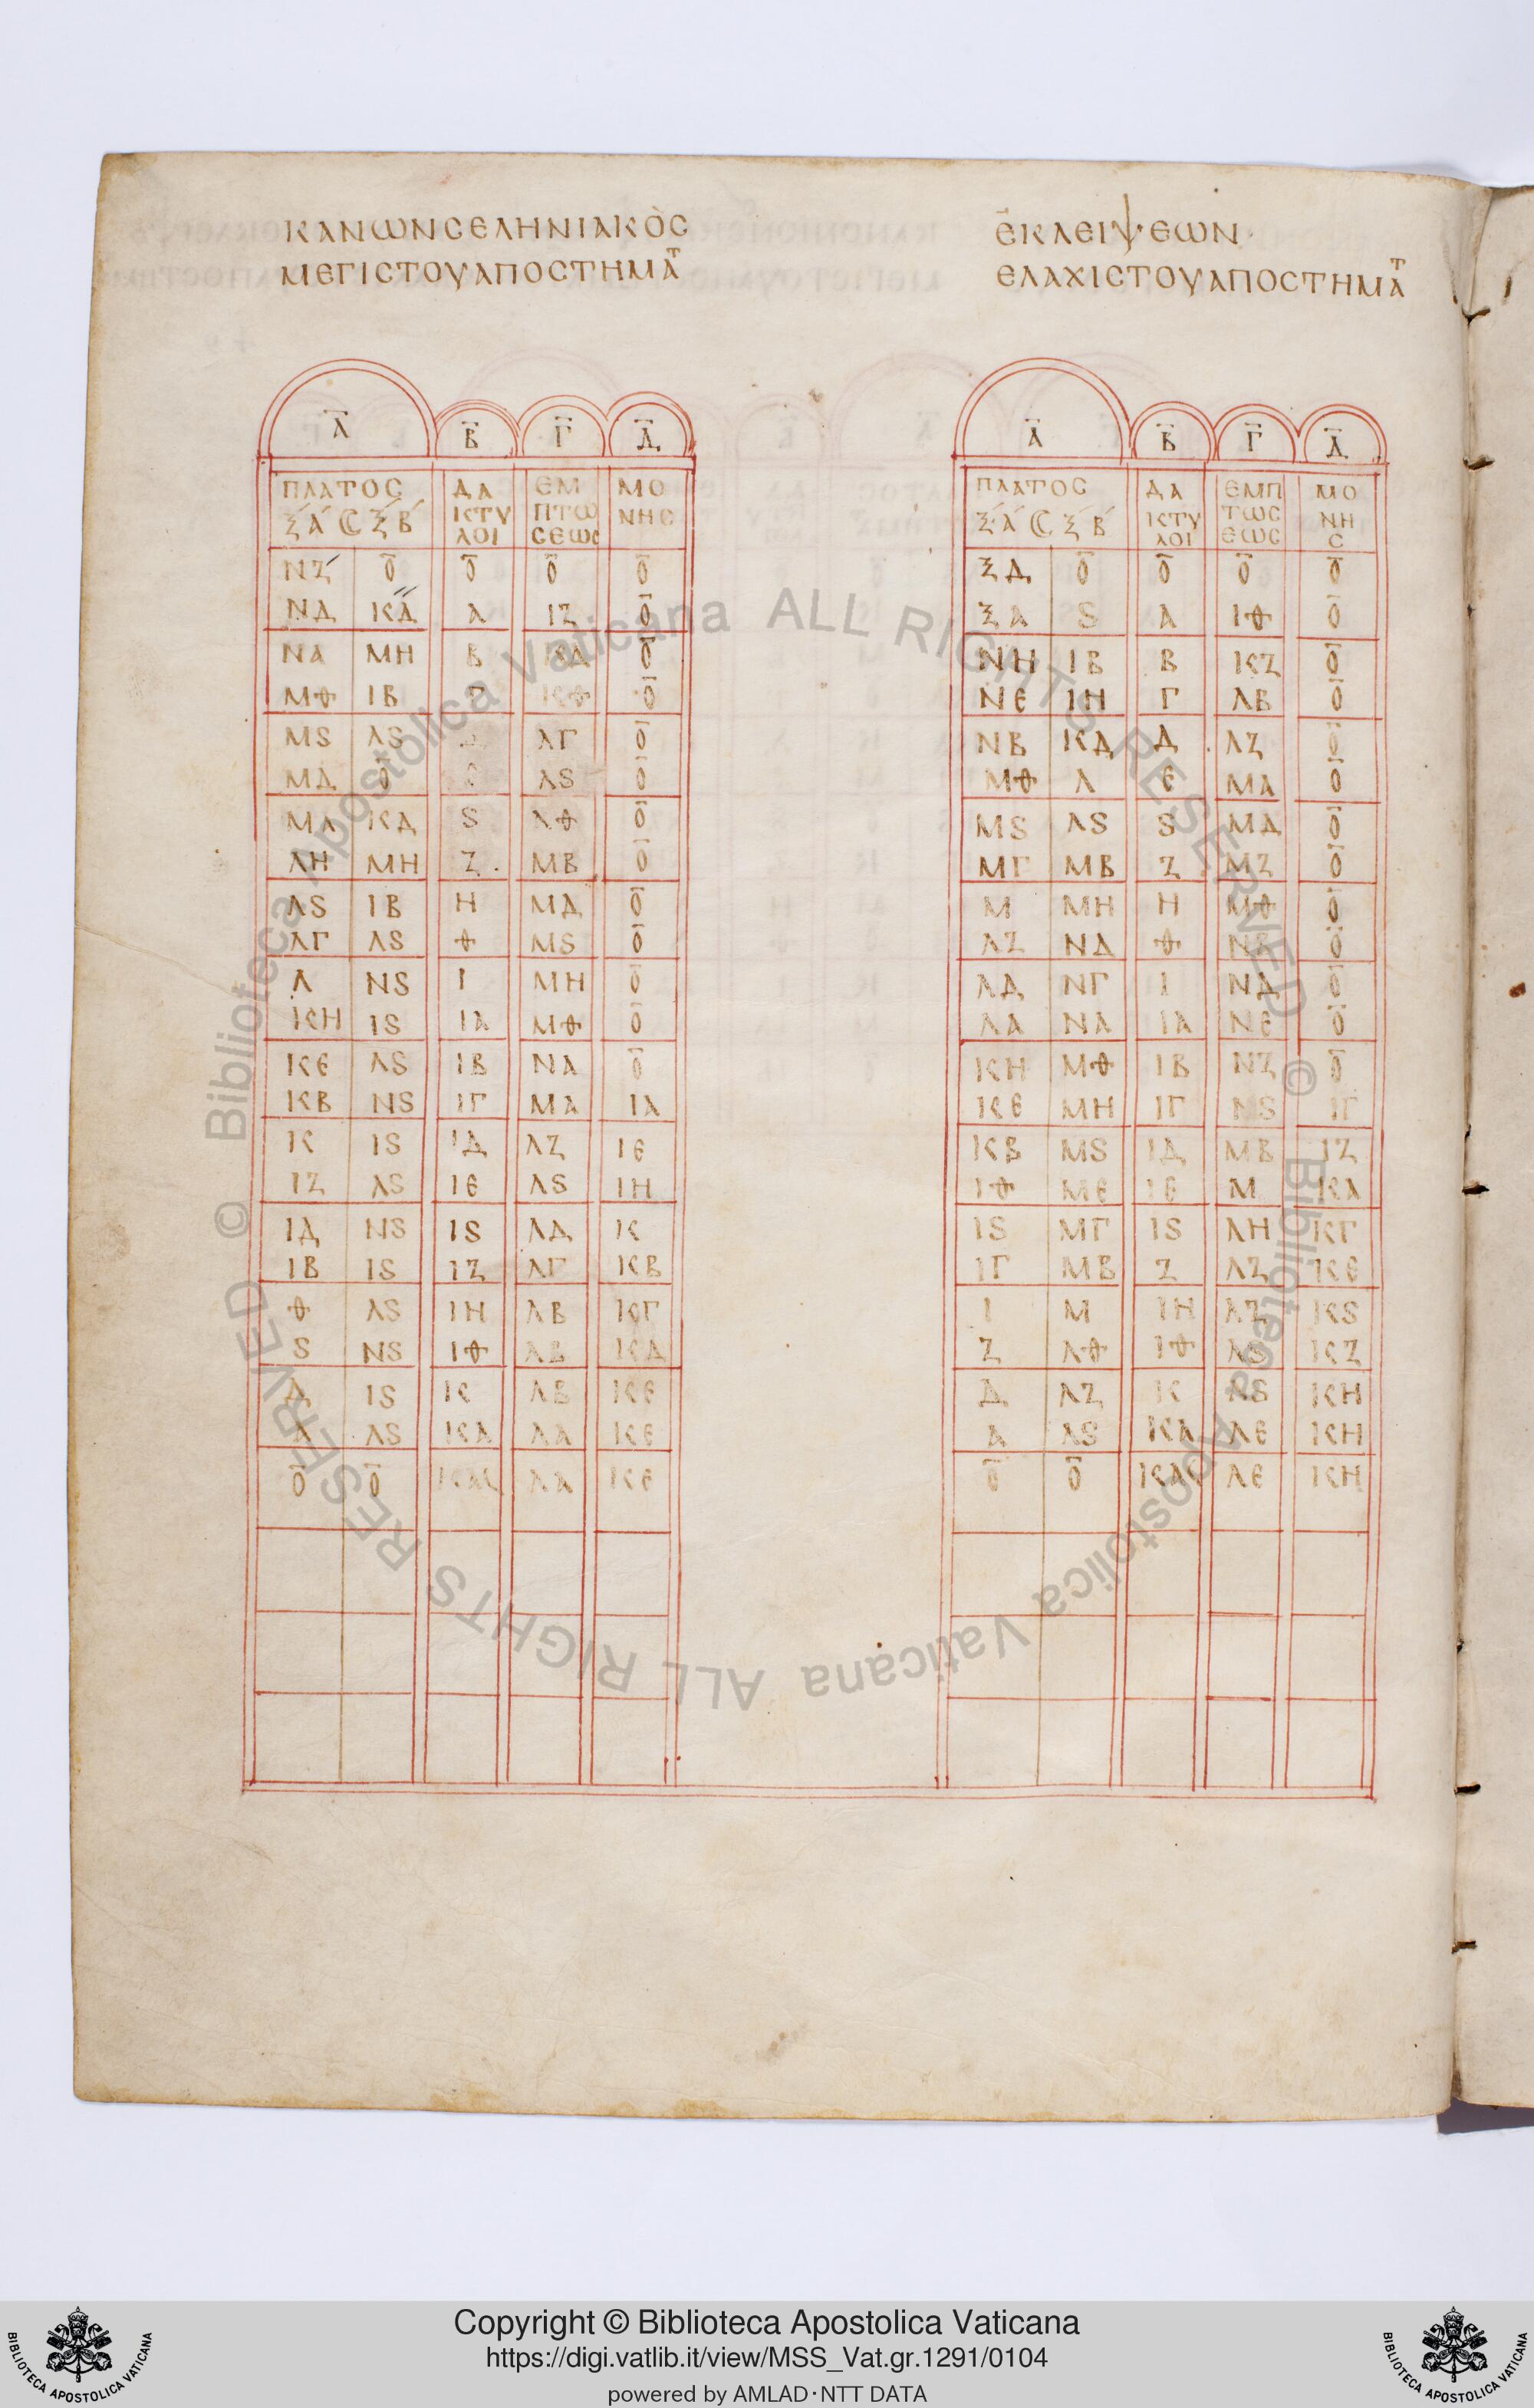 ΚΑΝΩΝ ΣΕΛΗΝΙΑΚΟΣ ΕΚΛΕΙΨΕΩΝ
ΜΕΓΙΣΤΟΥ ΑΠΟΣΤΗΜΑΤ ΕΛΑΧΙΣΤΟΥ ΑΠΟΣΤΗΜΑΤ
Α Β Γ Δ Α Β Γ Δ
ΠΛΑΤΟΣ ΔΑ ΕΜ ΜΟ ΠΛΑΤΟΣ ΔΑ ΕΜΠ ΜΟ
Ξ Α Ξ Β ΚΤΥ ΠΤΩ ΝΗΣ Ξ Α Ξ Β ΚΤΥ ΤΩΣ ΝΗ
ΛΟΙ ΣΕΩΣ ΛΟΙ ΕΩΣ Σ
ΝΖ Ο Ο Ο Ο ΞΔ Ο Ο Ο Ο
ΝΔ ΚΔ Α ΙΖ Ο ΞΑ Ϛ Α ΙΘ Ο
ΝΑ ΜΗ Β ΚΔ Ο ΝΗ ΙΒ Β ΚΖ Ο
ΜΘ ΙΒ Γ ΚΘ Ο ΝΕ ΙΗ Γ ΛΒ Ο
ΜϚ ΛϚ ΛΓ Ο ΝΒ ΚΔ Δ ΛΖ Ο
ΜΔ Ο ΛϚ Ο ΜΘ Λ Ε ΜΑ Ο
ΜΑ ΚΔ Ϛ ΛΘ Ο ΜϚ ΛϚ Ϛ ΜΔ Ο
ΛΗ ΜΗ Ζ ΜΒ Ο ΜΓ ΜΒ Ζ ΜΖ Ο
ΛϚ ΙΒ Η ΜΔ Ο Μ ΜΗ Η ΜΘ Ο
ΛΓ ΛϚ Θ ΜϚ Ο ΛΖ ΝΔ Θ ΝΒ Ο
Λ ΝϚ Ι ΜΗ Ο ΛΔ ΝΓ Ι ΝΔ Ο
ΚΗ ΙϚ ΙΑ ΜΘ Ο ΛΑ ΝΑ ΙΑ ΝΕ Ο
ΚΕ ΛϚ ΙΒ ΝΑ Ο ΚΗ ΜΘ ΙΒ ΝΖ Ο
ΚΒ ΝϚ ΙΓ ΜΑ ΙΑ ΚΕ ΜΗ ΙΓ ΝϚ ΙΓ
Κ ΙϚ ΙΔ ΛΖ ΙΕ ΚΒ ΜϚ ΙΔ ΜΒ ΙΖ
ΙΖ ΛϚ ΙΕ ΛϚ ΙΗ ΙΘ ΜΕ ΙΕ Μ ΚΑ
ΙΔ ΝϚ ΙϚ ΛΔ Κ ΙϚ ΜΓ ΙϚ ΛΗ ΚΓ
ΙΒ ΙϚ ΙΖ ΛΓ ΚΒ ΙΓ ΜΒ Ζ ΛΖ ΚΕ
Θ ΛϚ ΙΗ ΛΒ ΚΓ Ι Μ ΙΗ ΛΖ ΚϚ
Ϛ ΝϚ ΙΘ ΛΒ ΚΔ Ζ ΛΘ ΙΘ ΛϚ ΚΖ
Δ ΙϚ Κ ΛΒ ΚΕ Δ ΛΖ Κ ΛϚ ΚΗ
Α ΛϚ ΚΑ ΛΑ ΚΕ Α ΛϚ ΚΑ ΛΕ ΚΗ
Ο Ο ΚΑ ΛΑ ΚΕ Ο Ο ΚΑ ΛΕ ΚΗ
© Biblioteca Apostolica Vaticana ALL RIGHTS RESERVED © Biblioteca Apostolica Vaticana ALL RIGHTS RESERVED
Copyright © Biblioteca Apostolica Vaticana
https://digi.vatlib.it/view/MSS_Vat.gr.1291/0104
powered by AMLAD·NTT DATA
BIBLIOTECA APOSTOLICA VATICANA
BIBLIOTECA APOSTOLICA VATICANA